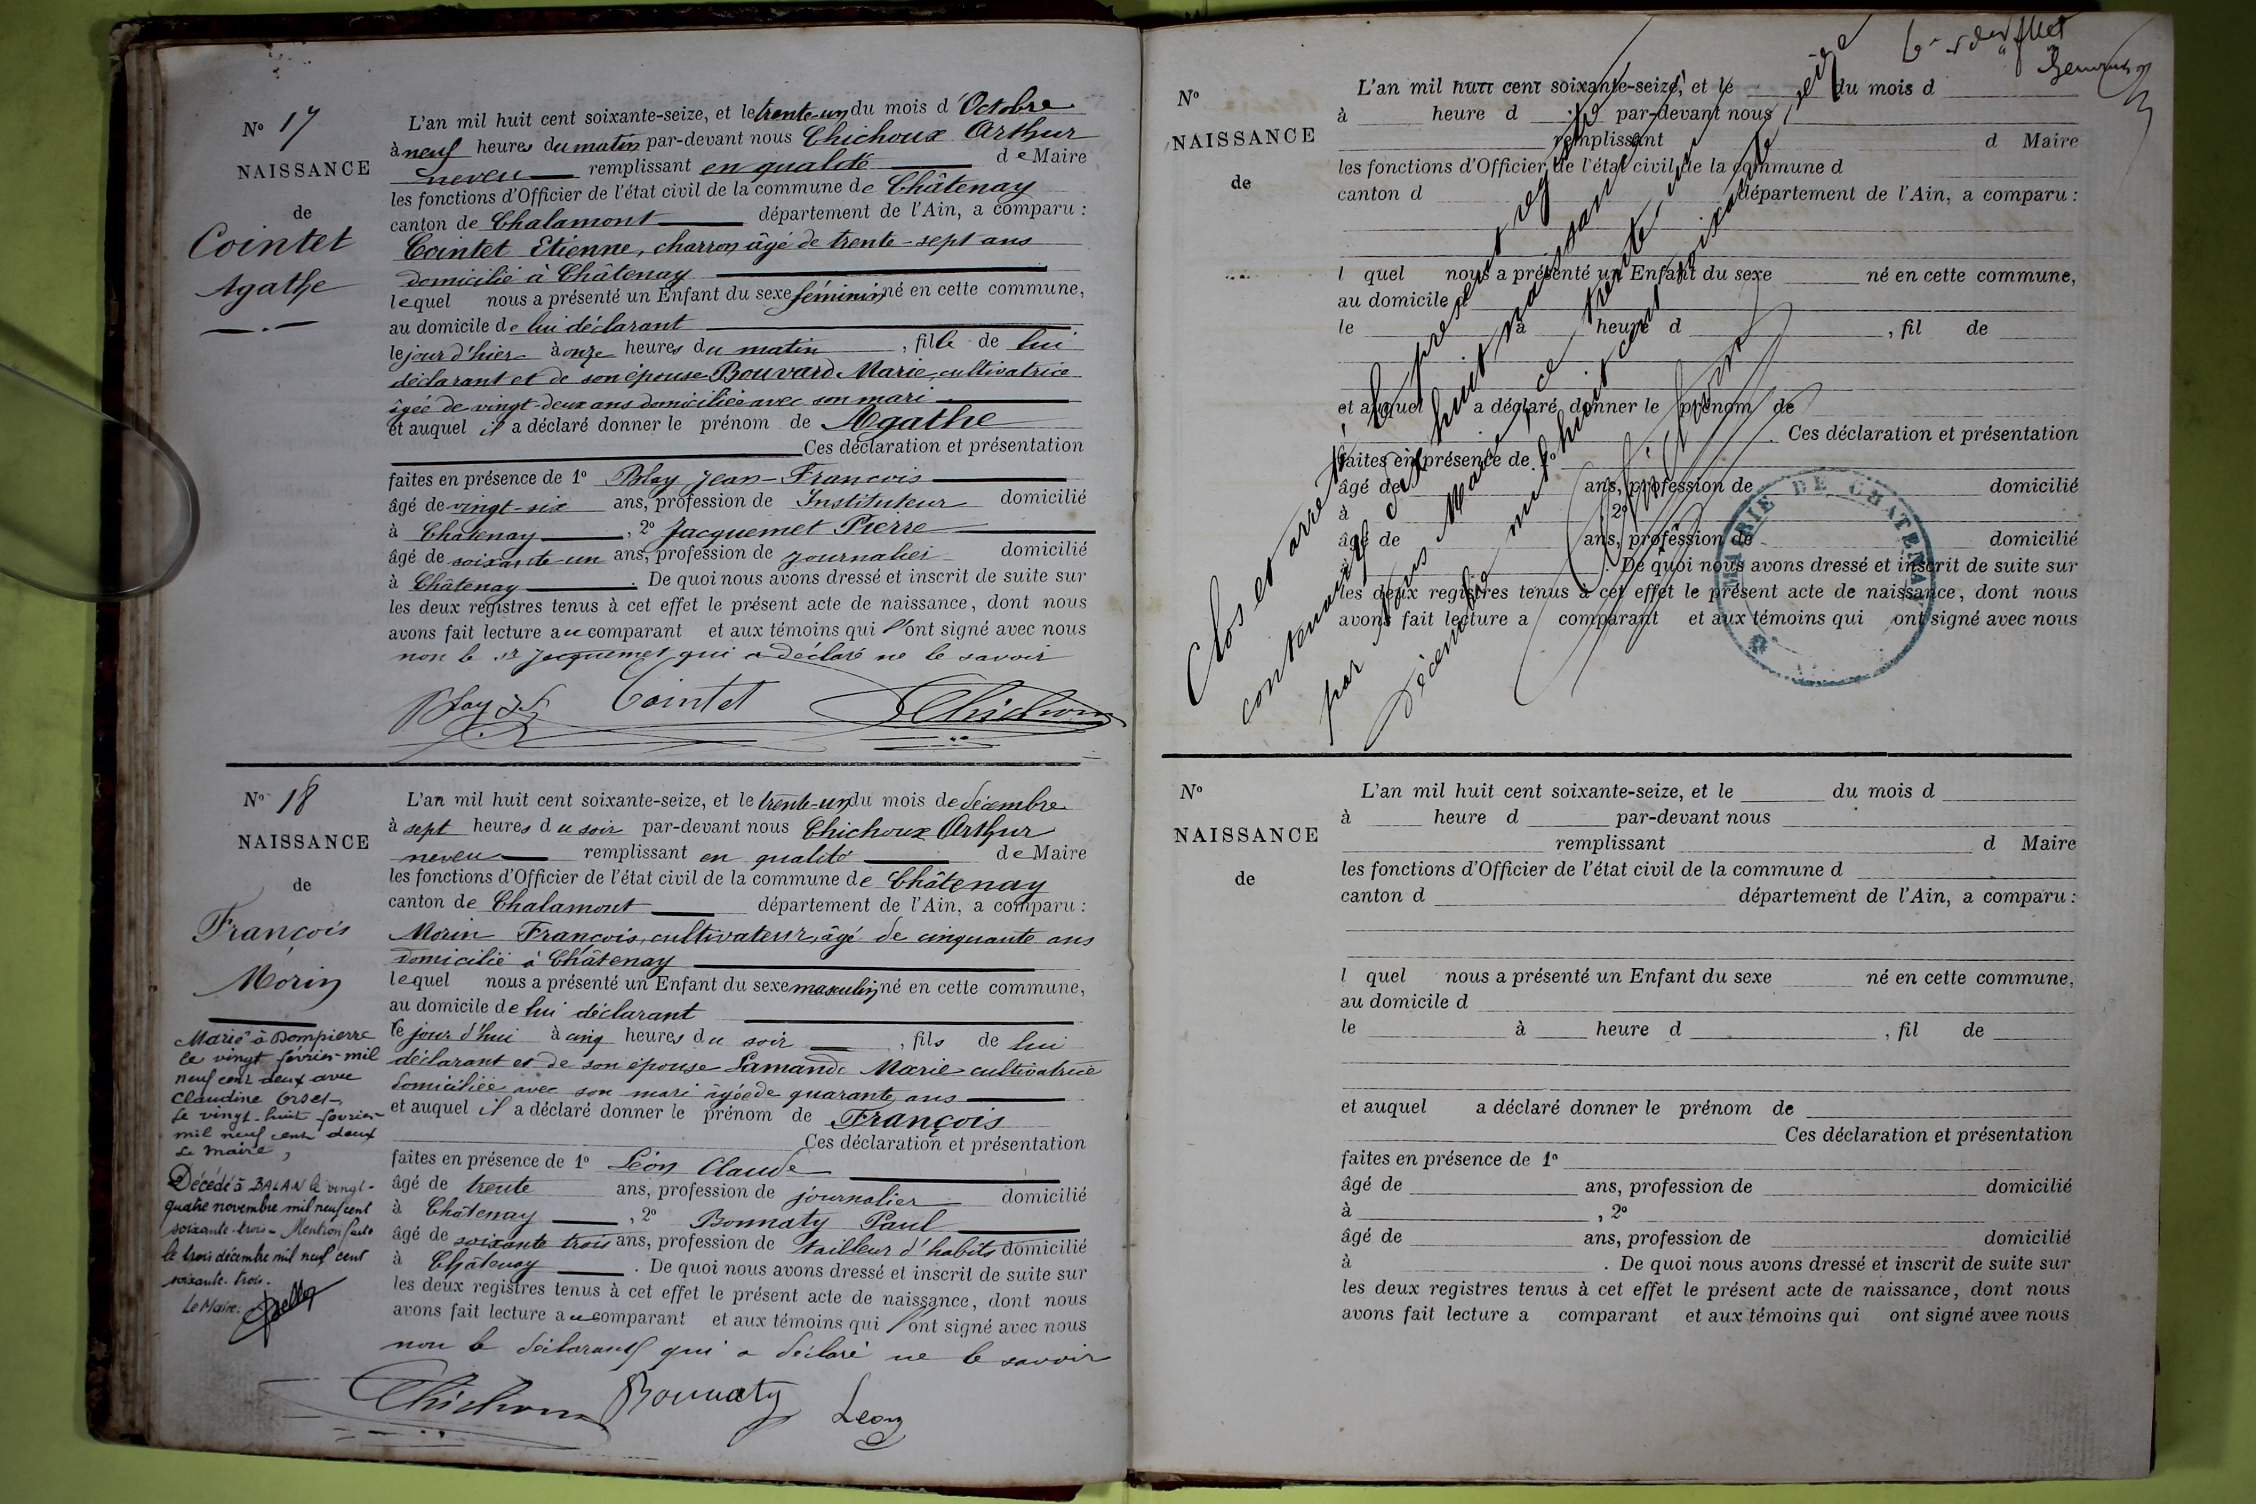 No 17
NAISSANCE
de
Cointet
Agathe
L'an mil huit cent soixante-seize, et le trente-un du mois d'Octobre
à neuf heures du matin par-devant nous Chichoux Arthur
neveu remplissant en qualité de Maire
les fonctions d'Officier de l'état civil de la commune de Châtenay
canton de Chalamont département de l'Ain, a comparu :
Cointet Etienne, charron, âgé de trente-sept ans
domicilié à Châtenay
lequel nous a présenté un Enfant du sexe féminin né en cette commune,
au domicile de lui déclarant
le jour d'hier à onze heures du matin , fille de lui
déclarant et de son épouse Bouvard Marie, cultivatrice
âgée de vingt-deux ans domiciliée avec son mari
et auquel il a déclaré donner le prénom de Agathe
Ces déclaration et présentation
faites en présence de 1o Blay Jean-François
âgé de vingt-six ans, profession de Instituteur domicilié
à Châtenay , 2o Jacquemet Pierre
âgé de soixante-un ans, profession de journalier domicilié
à Châtenay . De quoi nous avons dressé et inscrit de suite sur
les deux registres tenus à cet effet le présent acte de naissance, dont nous
avons fait lecture au comparant et aux témoins qui l'ont signé avec nous
non le sr Jacquemet qui a déclaré ne le savoir
Blay J.F. Cointet Chichoux
No 18
NAISSANCE
de
François
Morin
Marié à Dompierre
le vingt février mil
neuf cent deux avec
Claudine Orset
Le vingt-huit février
mil neuf cent deux
Le maire,
Décédé à BALAN le vingt-
quatre novembre mil neuf cent
soixante-trois - Mention faite
le trois décembre mil neuf cent
soixante-trois.
Le Maire:
L'an mil huit cent soixante-seize, et le trente-un du mois de décembre
à sept heures du soir par-devant nous Chichoux Arthur
neveu remplissant en qualité de Maire
les fonctions d'Officier de l'état civil de la commune de Châtenay
canton de Chalamont département de l'Ain, a comparu :
Morin François, cultivateur, âgé de cinquante ans
domicilié à Châtenay
lequel nous a présenté un Enfant du sexe masculin né en cette commune,
au domicile de lui déclarant
le jour d'hui à cinq heures du soir , fils de lui
déclarant et de son épouse Lamande Marie cultivatrice
domiciliée avec son mari âgée de quarante ans
et auquel il a déclaré donner le prénom de François
Ces déclaration et présentation
faites en présence de 1o Léon Claude
âgé de trente ans, profession de journalier domicilié
à Châtenay , 2o Bonnaty Paul
âgé de soixante trois ans, profession de tailleur d'habits domicilié
à Châtenay . De quoi nous avons dressé et inscrit de suite sur
les deux registres tenus à cet effet le présent acte de naissance, dont nous
avons fait lecture au comparant et aux témoins qui l'ont signé avec nous
non le déclarant qui a déclaré ne le savoir
Chichoux Bonnaty Leon
No
NAISSANCE
de
L'an mil huit cent soixante-seize, et le du mois d
à heure d par-devant nous
remplissant d Maire
les fonctions d'Officier de l'état civil de la commune d
canton d département de l'Ain, a comparu :
l quel nous a présenté un Enfant du sexe né en cette commune,
au domicile d
le à heure d , fil de
et auquel a déclaré donner le prénom de
Ces déclaration et présentation
faites en présence de 1o
âgé de ans, profession de domicilié
à , 2o
âgé de ans, profession de domicilié
à . De quoi nous avons dressé et inscrit de suite sur
les deux registres tenus à cet effet le présent acte de naissance, dont nous
avons fait lecture a comparant et aux témoins qui ont signé avec nous
Clos et arrêté, le présent registre
contenant dix huit naissances
par nous Maire ce trente un
décembre mil huit cent soixante seize
MAIRIE DE CHATENAY
No
NAISSANCE
de
L'an mil huit cent soixante-seize, et le du mois d
à heure d par-devant nous
remplissant d Maire
les fonctions d'Officier de l'état civil de la commune d
canton d département de l'Ain, a comparu :
l quel nous a présenté un Enfant du sexe né en cette commune,
au domicile d
le à heure d , fil de
et auquel a déclaré donner le prénom de
Ces déclaration et présentation
faites en présence de 1o
âgé de ans, profession de domicilié
à , 2o
âgé de ans, profession de domicilié
à . De quoi nous avons dressé et inscrit de suite sur
les deux registres tenus à cet effet le présent acte de naissance, dont nous
avons fait lecture a comparant et aux témoins qui ont signé avec nous